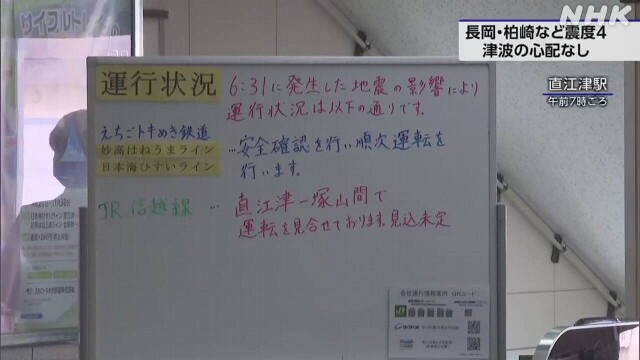 長岡・柏崎など震度4
津波の心配なし
NHK
直江津駅
午前7時ごろ
サイクルトレ
運行状況
6:31に発生した地震の影響により
運行状況は以下の通りです。
えちごトキめき鉄道
妙高はねうまライン
日本海ひすいライン
…安全確認を行い順次運転を
行います。
JR信越線 …
直江津ー塚山間で
運転を見合せております。見込未定
各社運行情報案内 QRコード